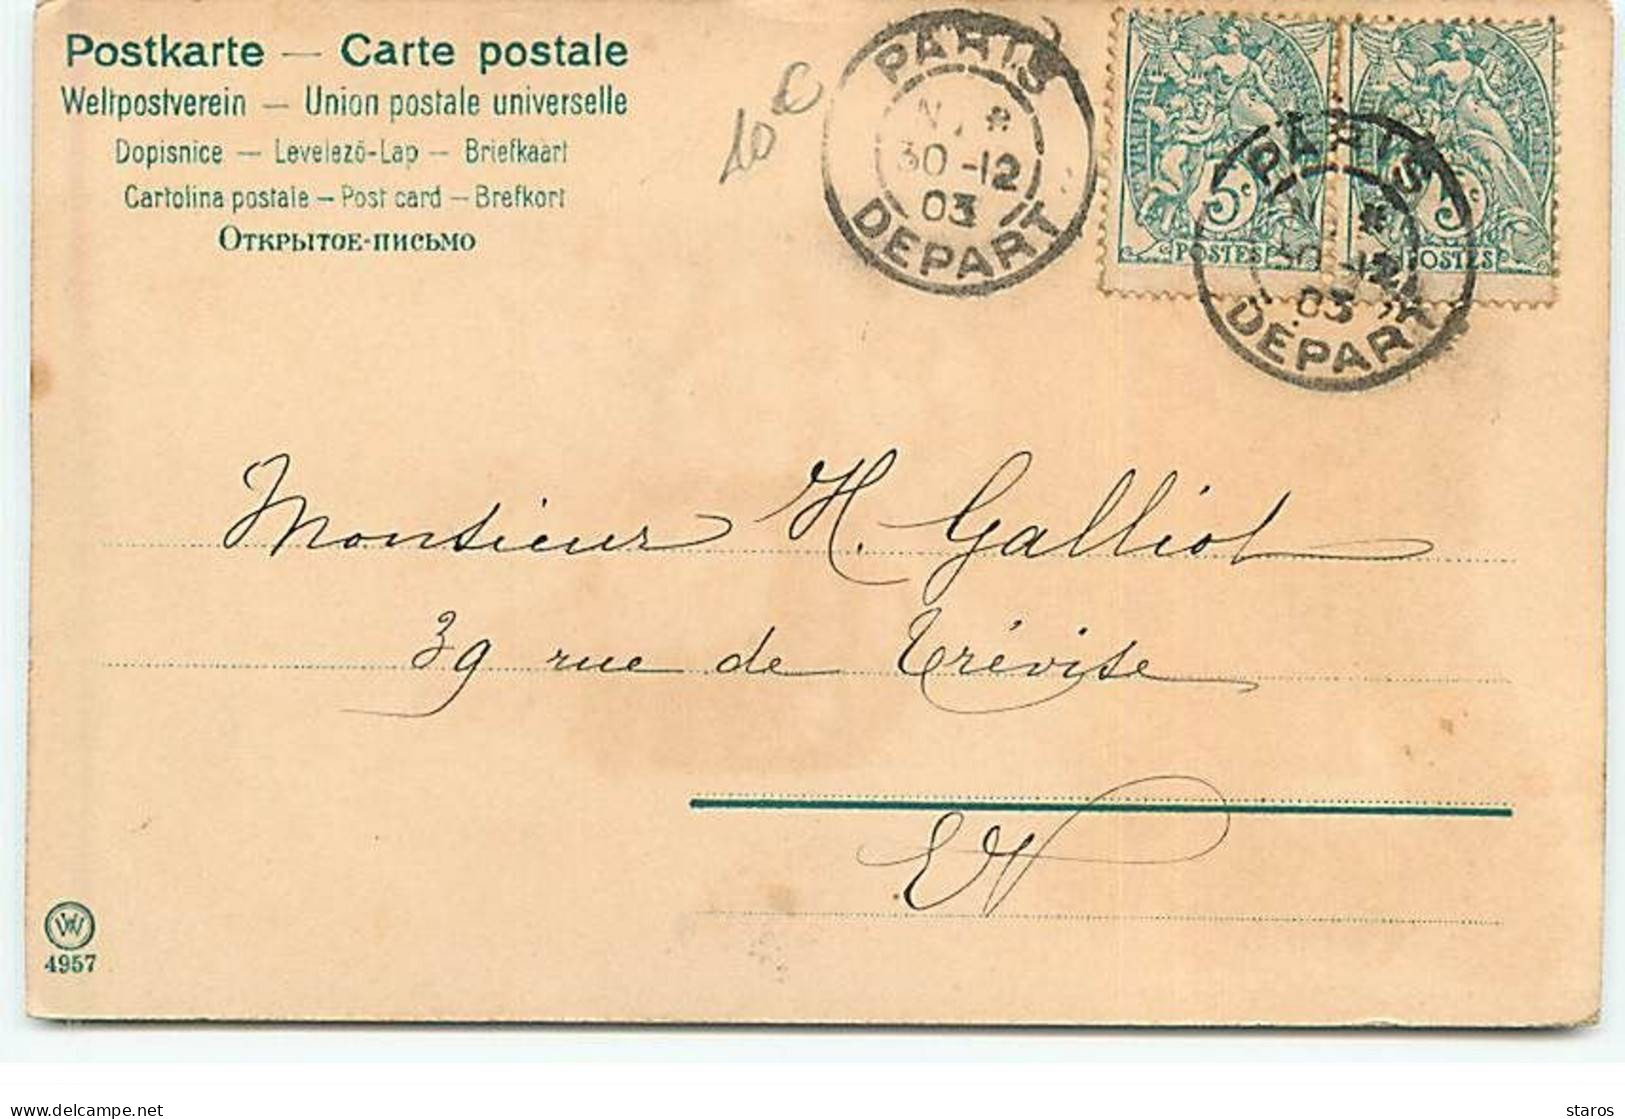 Postkarte — Carte postale
Weltpostverein — Union postale universelle
Dopisnice — Levelező-Lap — Briefkaart
Cartolina postale — Post card — Brefkort
Открытое-письмо
10 €
PARIS
30 -12
03
DEPART
5c
POSTES
5c
POSTES
PARIS
30 -12
03
DEPART
Monsieur H. Galliot
39 rue de Trévise
EV
4957
delcampe.net
staros